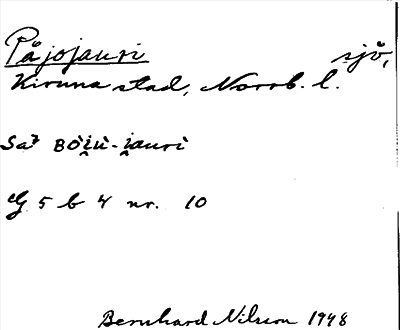 Påjojauri sjö,
Kiruna stad, Norrb. l.
Sa² BÒi̯ù-i̯auri
eG 5 b 4 nr. 10
Bernhard Nilsson 1948